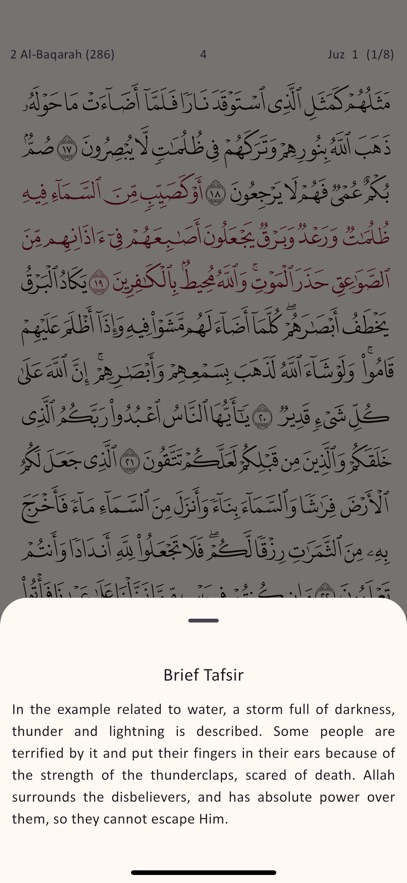 2 Al-Baqarah (286) 4 Juz 1 (1/8)
مَثَلُهُمْ كَمَثَلِ الَّذِي اسْتَوْقَدَ نَارًا فَلَمَّا أَضَاءَتْ مَا حَوْلَهُ
ذَهَبَ اللَّهُ بِنُورِهِمْ وَتَرَكَهُمْ فِي ظُلُمَاتٍ لَّا يُبْصِرُونَ ١٧ صُمٌّ
بُكْمٌ عُمْيٌ فَهُمْ لَا يَرْجِعُونَ ١٨ أَوْ كَصَيِّبٍ مِّنَ السَّمَاءِ فِيهِ
ظُلُمَاتٌ وَرَعْدٌ وَبَرْقٌ يَجْعَلُونَ أَصَابِعَهُمْ فِي ءَاذَانِهِم مِّنَ
الصَّوَاعِقِ حَذَرَ الْمَوْتِ ۚ وَاللَّهُ مُحِيطٌ بِالْكَافِرِينَ ١٩ يَكَادُ الْبَرْقُ
يَخْطَفُ أَبْصَارَهُمْ ۖ كُلَّمَا أَضَاءَ لَهُم مَّشَوْا فِيهِ وَإِذَا أَظْلَمَ عَلَيْهِمْ
قَامُوا ۚ وَلَوْ شَاءَ اللَّهُ لَذَهَبَ بِسَمْعِهِمْ وَأَبْصَارِهِمْ ۚ إِنَّ اللَّهَ عَلَىٰ
كُلِّ شَيْءٍ قَدِيرٌ ٢٠ يَا أَيُّهَا النَّاسُ اعْبُدُوا رَبَّكُمُ الَّذِي
خَلَقَكُمْ وَالَّذِينَ مِن قَبْلِكُمْ لَعَلَّكُمْ تَتَّقُونَ ٢١ الَّذِي جَعَلَ لَكُمُ
الْأَرْضَ فِرَاشًا وَالسَّمَاءَ بِنَاءً وَأَنزَلَ مِنَ السَّمَاءِ مَاءً فَأَخْرَجَ
بِهِ مِنَ الثَّمَرَاتِ رِزْقًا لَّكُمْ ۖ فَلَا تَجْعَلُوا لِلَّهِ أَندَادًا وَأَنتُمْ
تَعْلَمُونَ ٢٢ وَإِن كُنتُمْ
Brief Tafsir
In the example related to water, a storm full of darkness,
thunder and lightning is described. Some people are
terrified by it and put their fingers in their ears because of
the strength of the thunderclaps, scared of death. Allah
surrounds the disbelievers, and has absolute power over
them, so they cannot escape Him.